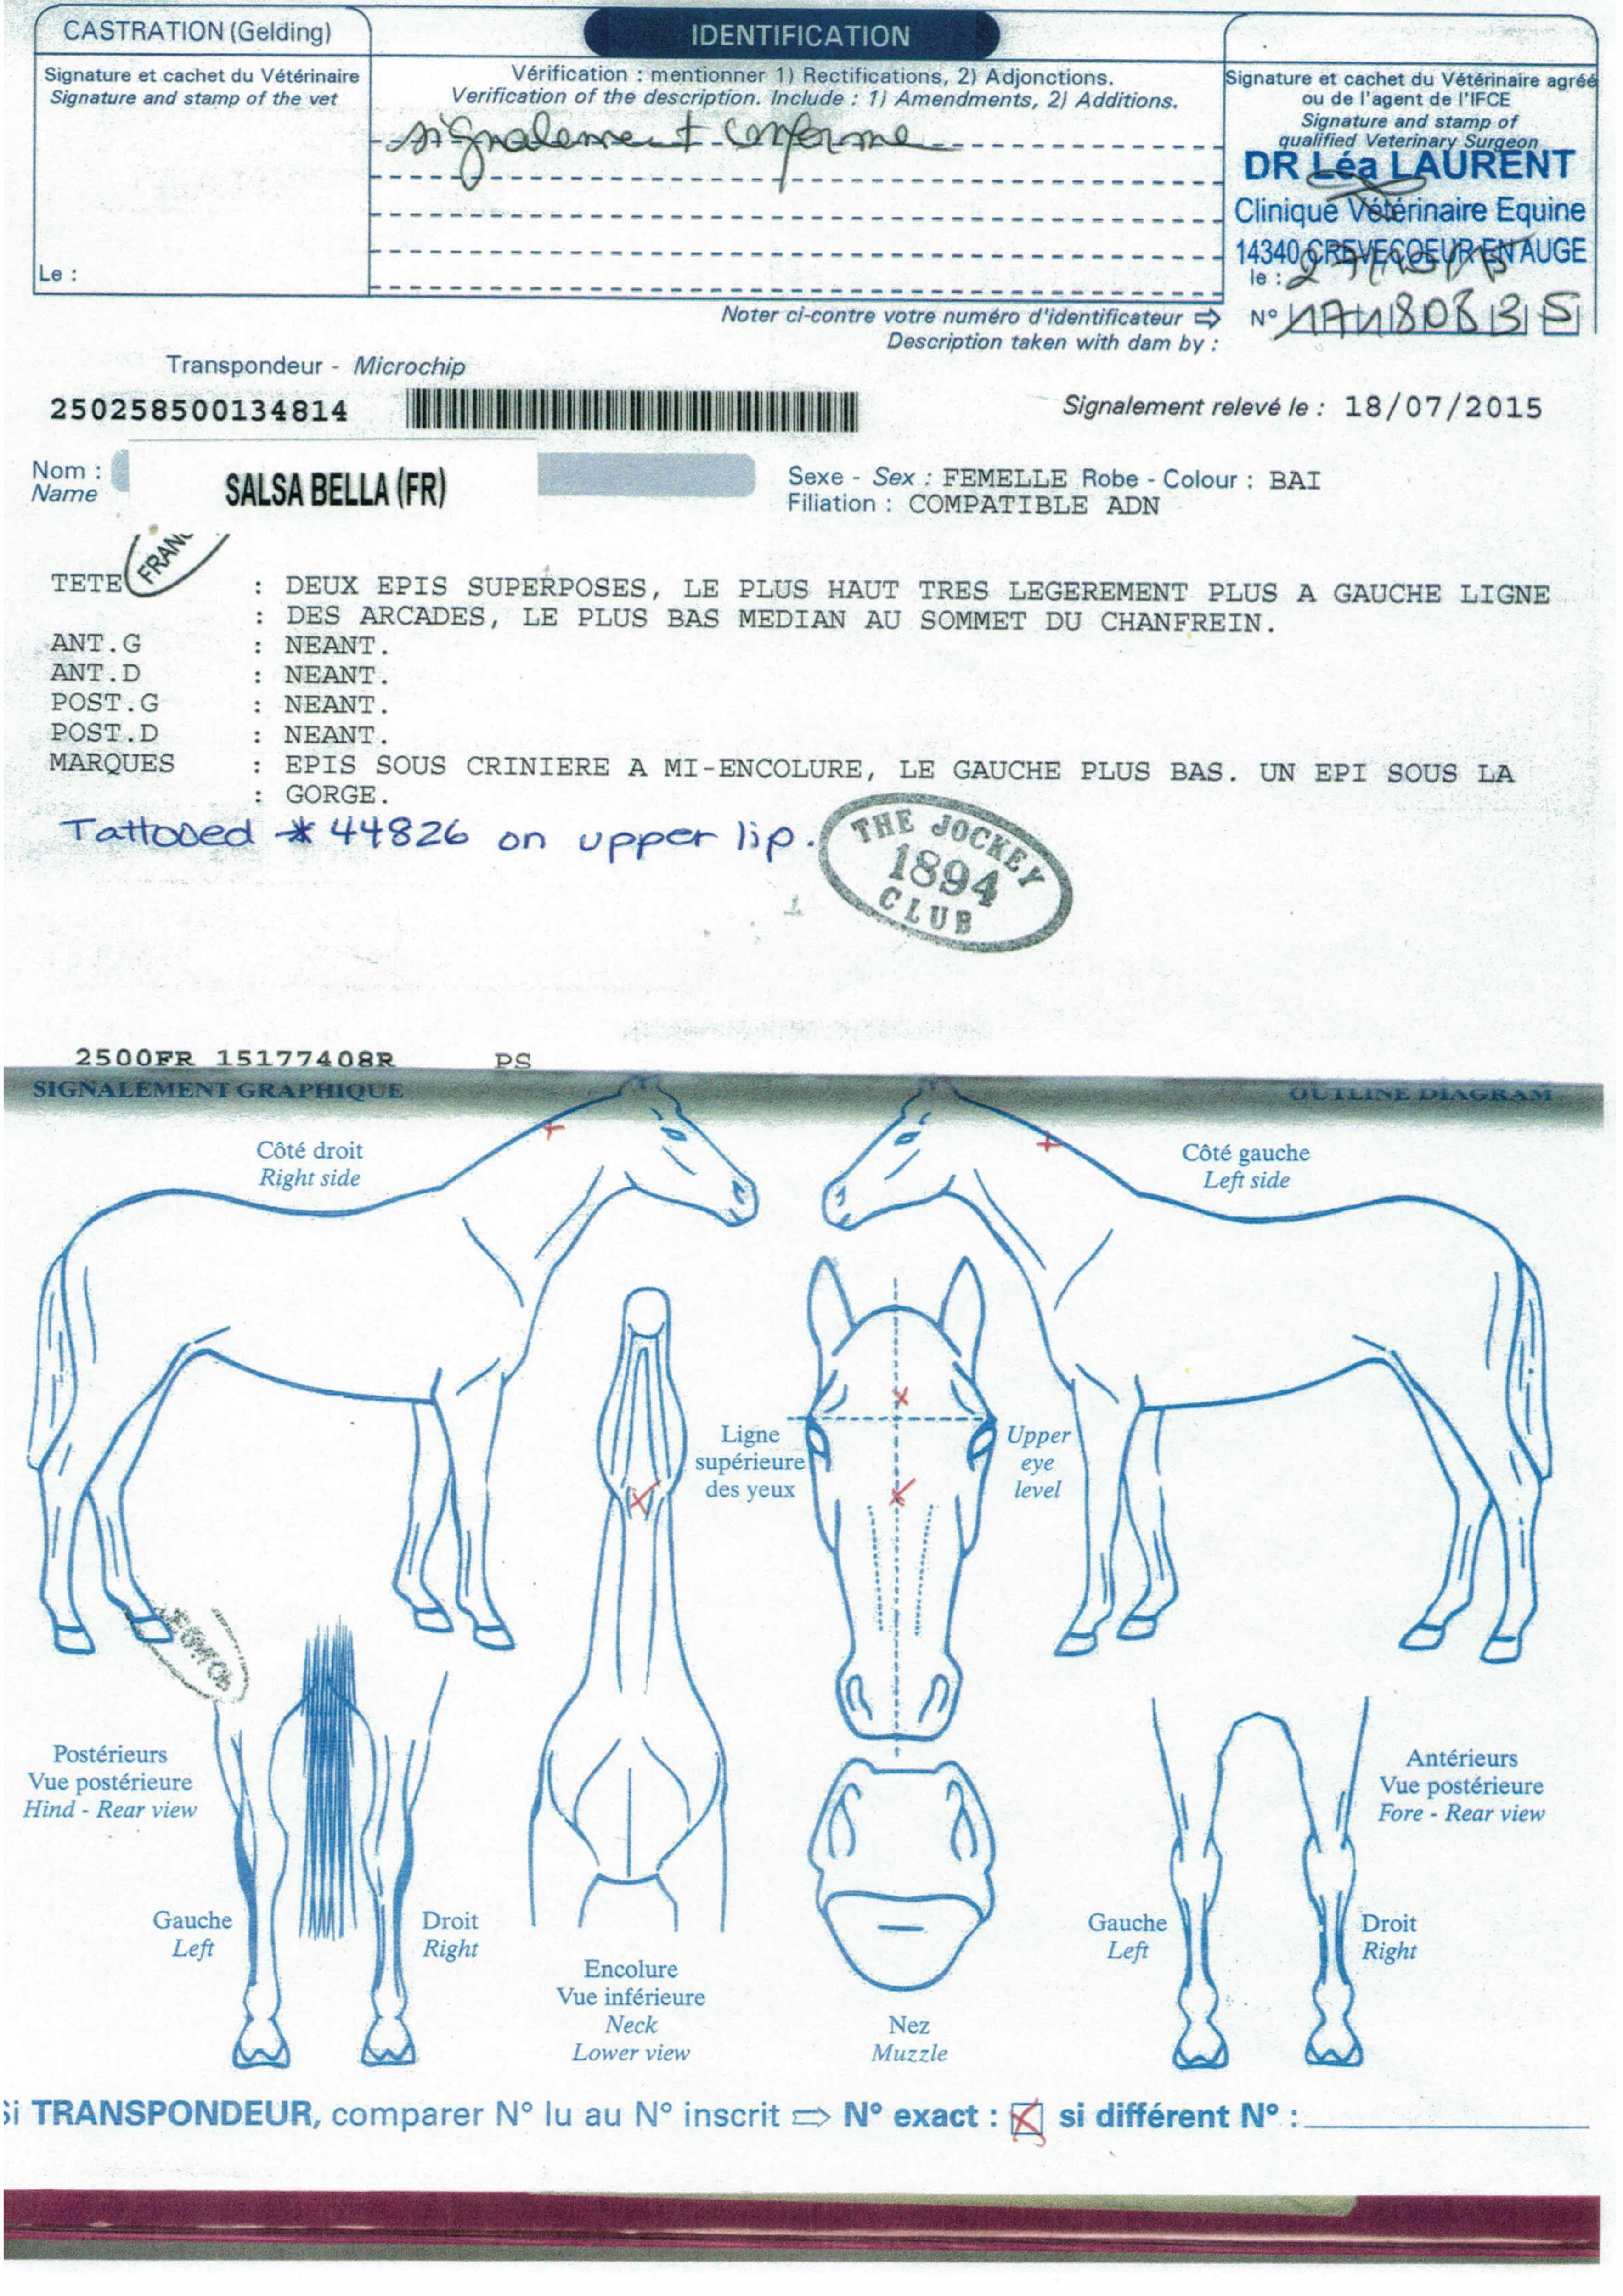 CASTRATION (Gelding)
Signature et cachet du Vétérinaire
Signature and stamp of the vet
Le :
IDENTIFICATION
Vérification : mentionner 1) Rectifications, 2) Adjonctions.
Verification of the description. Include : 1) Amendments, 2) Additions.
signalement conforme
Signature et cachet du Vétérinaire agréé
ou de l'agent de l'IFCE
Signature and stamp of
qualified Veterinary Surgeon
DR Léa LAURENT
Clinique Vétérinaire Equine
14340 CREVECOEUR EN AUGE
le :
Noter ci-contre votre numéro d'identificateur ⇨ N°
Description taken with dam by :
Transpondeur - Microchip
250258500134814
Signalement relevé le : 18/07/2015
Nom :
Name
SALSA BELLA (FR)
Sexe - Sex : FEMELLE Robe - Colour : BAI
Filiation : COMPATIBLE ADN
FRAN
TETE : DEUX EPIS SUPERPOSES, LE PLUS HAUT TRES LEGEREMENT PLUS A GAUCHE LIGNE
: DES ARCADES, LE PLUS BAS MEDIAN AU SOMMET DU CHANFREIN.
ANT.G : NEANT.
ANT.D : NEANT.
POST.G : NEANT.
POST.D : NEANT.
MARQUES : EPIS SOUS CRINIERE A MI-ENCOLURE, LE GAUCHE PLUS BAS. UN EPI SOUS LA
: GORGE.
Tattooed * 44826 on upper lip.
THE JOCKEY
1894
CLUB
2500FR 15177408R PS
SIGNALEMENT GRAPHIQUE
OUTLINE DIAGRAM
Côté droit
Right side
Côté gauche
Left side
Ligne
supérieure
des yeux
Upper
eye
level
Postérieurs
Vue postérieure
Hind - Rear view
Antérieurs
Vue postérieure
Fore - Rear view
Gauche
Left
Droit
Right
Gauche
Left
Droit
Right
Encolure
Vue inférieure
Neck
Lower view
Nez
Muzzle
Si TRANSPONDEUR, comparer N° lu au N° inscrit ⇨ N° exact : ☒ si différent N° :